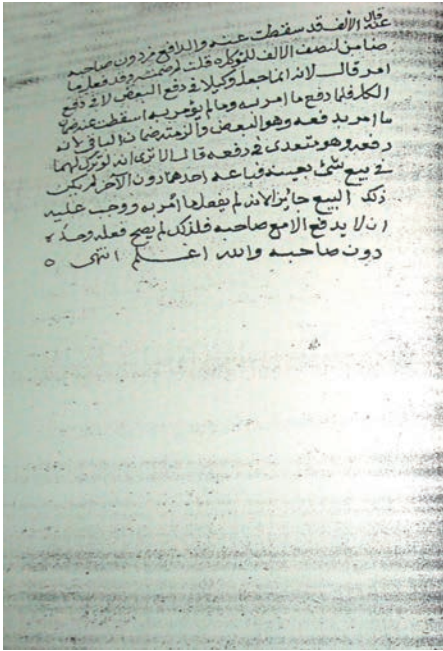 قال
عنه الألف قد سقطت عنه والدافع فرد ون صاحبه
ضامن لنصف الالف للموكل قلت لم ضمنت وقد فعل ما
امر قال لانه انما جعله وكيلا في دفع البعض لا في دفع
الكل فلما دفع ما امر به وما لم يؤمر به اسقطت عنه ضمن
ما امر بد فعه وهو البعض والزمته ضمان الباقي لانه
دفعه وهو متعدى في دفعه قال الا ترى انه لو وكل لهما
في بيع شئ بعينه فباعه احدهما دون الآخر لم يكن
ذلك البيع جائز الانه لم يفعل ما امر به ووجب عليه
ان لا يد فع الا مع صاحبه فلذلك لم يصح فعله وحده
دون صاحبه والله اعلم انتهى ٥